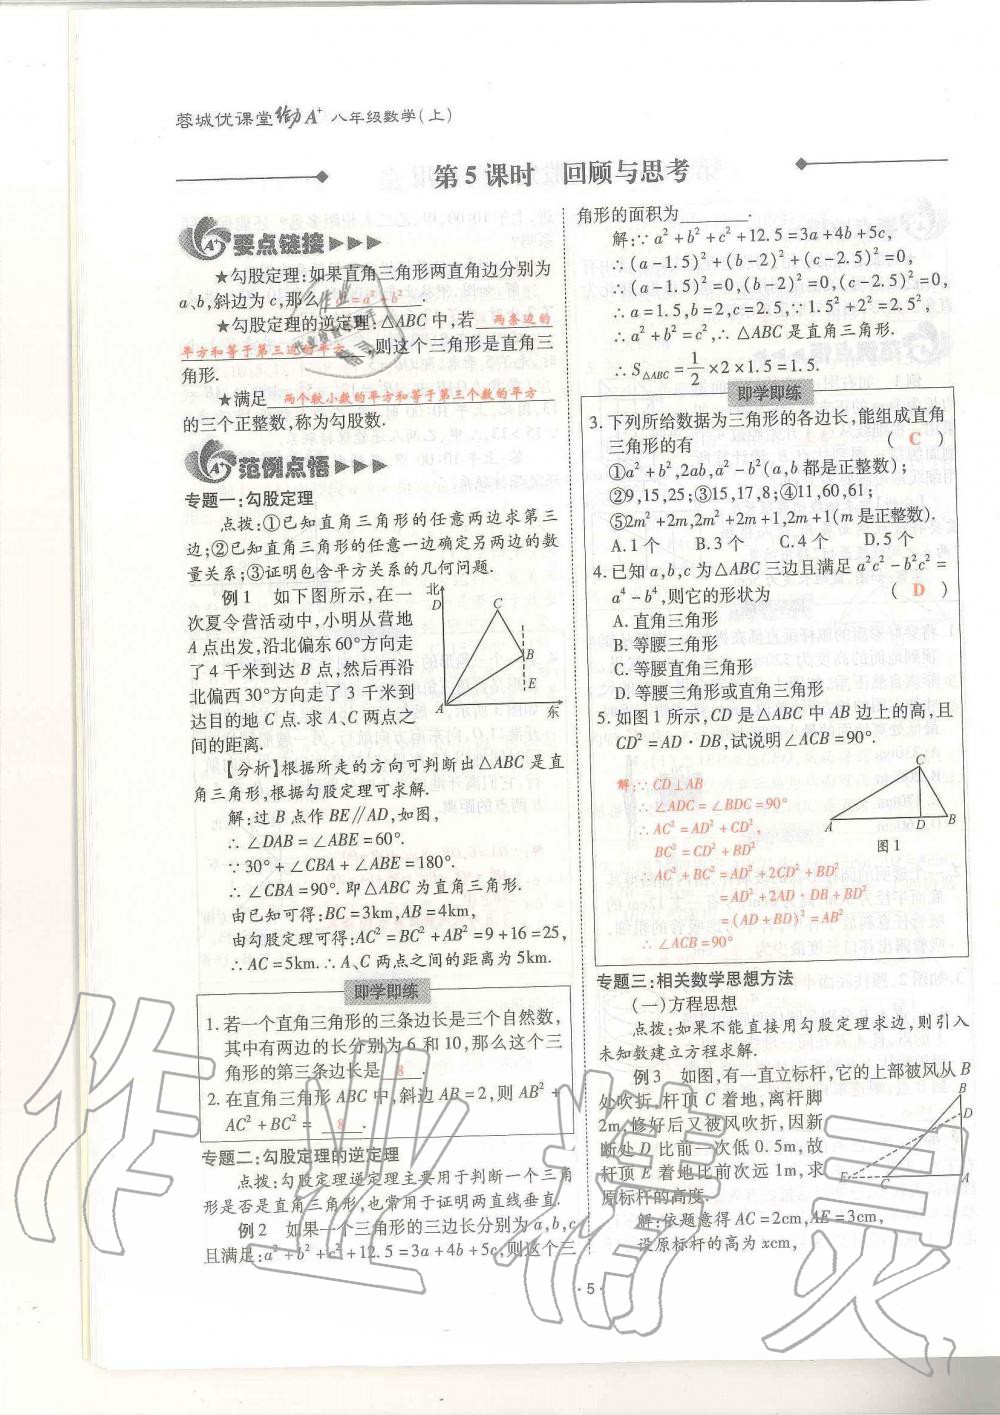 蓉城优课堂 A⁺ 八年级数学(上)
第5课时 回顾与思考
要点链接
★勾股定理:如果直角三角形两直角边分别为
a、b,斜边为c,那么 c²=a²+b² .
★勾股定理的逆定理:△ABC中,若 两条边的
平方和等于第三边的平方 ,则这个三角形是直角三
角形.
★满足 两个数小数的平方和等于第三个数的平方
的三个正整数,称为勾股数.
范例点悟
专题一:勾股定理
点拨:①已知直角三角形的任意两边求第三
边;②已知直角三角形的任意一边确定另两边的数
量关系;③证明包含平方关系的几何问题.
例1 如下图所示,在一
次夏令营活动中,小明从营地
A点出发,沿北偏东60°方向走
了4千米到达B点,然后再沿
北偏西30°方向走了3千米到
达目的地C点.求A、C两点之
间的距离.
北
D
C
B
E
A
东
【分析】根据所走的方向可判断出△ABC是直
角三角形,根据勾股定理可求解.
解:过B点作BE∥AD,如图,
∴∠DAB=∠ABE=60°.
∵30°+∠CBA+∠ABE=180°.
∴∠CBA=90°.即△ABC为直角三角形.
由已知可得:BC=3km,AB=4km,
由勾股定理可得:AC²=BC²+AB²=9+16=25,
∴AC=5km.∴A、C两点之间的距离为5km.
即学即练
1.若一个直角三角形的三条边长是三个自然数,
其中有两边的长分别为6和10,那么这个三
角形的第三条边长是 8 .
2.在直角三角形ABC中,斜边AB=2,则AB²+
AC²+BC²= 8 .
专题二:勾股定理的逆定理
点拨:勾股定理逆定理主要用于判断一个三角
形是否是直角三角形,也常用于证明两直线垂直.
例2 如果一个三角形的三边长分别为a,b,c
且满足:a²+b²+c²+12.5=3a+4b+5c,则这个三
角形的面积为______.
解:∵a²+b²+c²+12.5=3a+4b+5c,
∴(a-1.5)²+(b-2)²+(c-2.5)²=0,
∴(a-1.5)²=0,(b-2)²=0,(c-2.5)²=0,
∴a=1.5,b=2,c=2.5,∵1.5²+2²=2.5²,
∴a²+b²=c²,∴△ABC是直角三角形.
∴S△ABC=1/2×2×1.5=1.5.
即学即练
3.下列所给数据为三角形的各边长,能组成直角
三角形的有 ( C )
①a²+b²,2ab,a²-b²(a,b都是正整数);
②9,15,25;③15,17,8;④11,60,61;
⑤2m²+2m,2m²+2m+1,2m+1(m是正整数).
A.1个 B.3个 C.4个 D.5个
4.已知a,b,c为△ABC三边且满足a²c²-b²c²=
a⁴-b⁴,则它的形状为 ( D )
A.直角三角形
B.等腰三角形
C.等腰直角三角形
D.等腰三角形或直角三角形
5.如图1所示,CD是△ABC中AB边上的高,且
CD²=AD·DB,试说明∠ACB=90°.
解:∵CD⊥AB
∴∠ADC=∠BDC=90°
∴AC²=AD²+CD²,
BC²=CD²+BD²
AC²+BC²=AD²+2CD²+BD²
=AD²+2AD·DB+BD²
=(AD+BD)²=AB²
∴∠ACB=90°
C
A
D
B
图1
专题三:相关数学思想方法
(一)方程思想
点拨:如果不能直接用勾股定理求边,则引入
未知数建立方程求解.
例3 如图,有一直立标杆,它的上部被风从B
处吹折,杆顶C着地,离杆脚
2m,修好后又被风吹折,因新
断处D比前一次低0.5m,故
杆顶E着地比前次远1m,求
原标杆的高度.
B
D
E
C
A
解:依题意得AC=2cm,AE=3cm,
设原标杆的高为xcm,
·5·
作业精灵